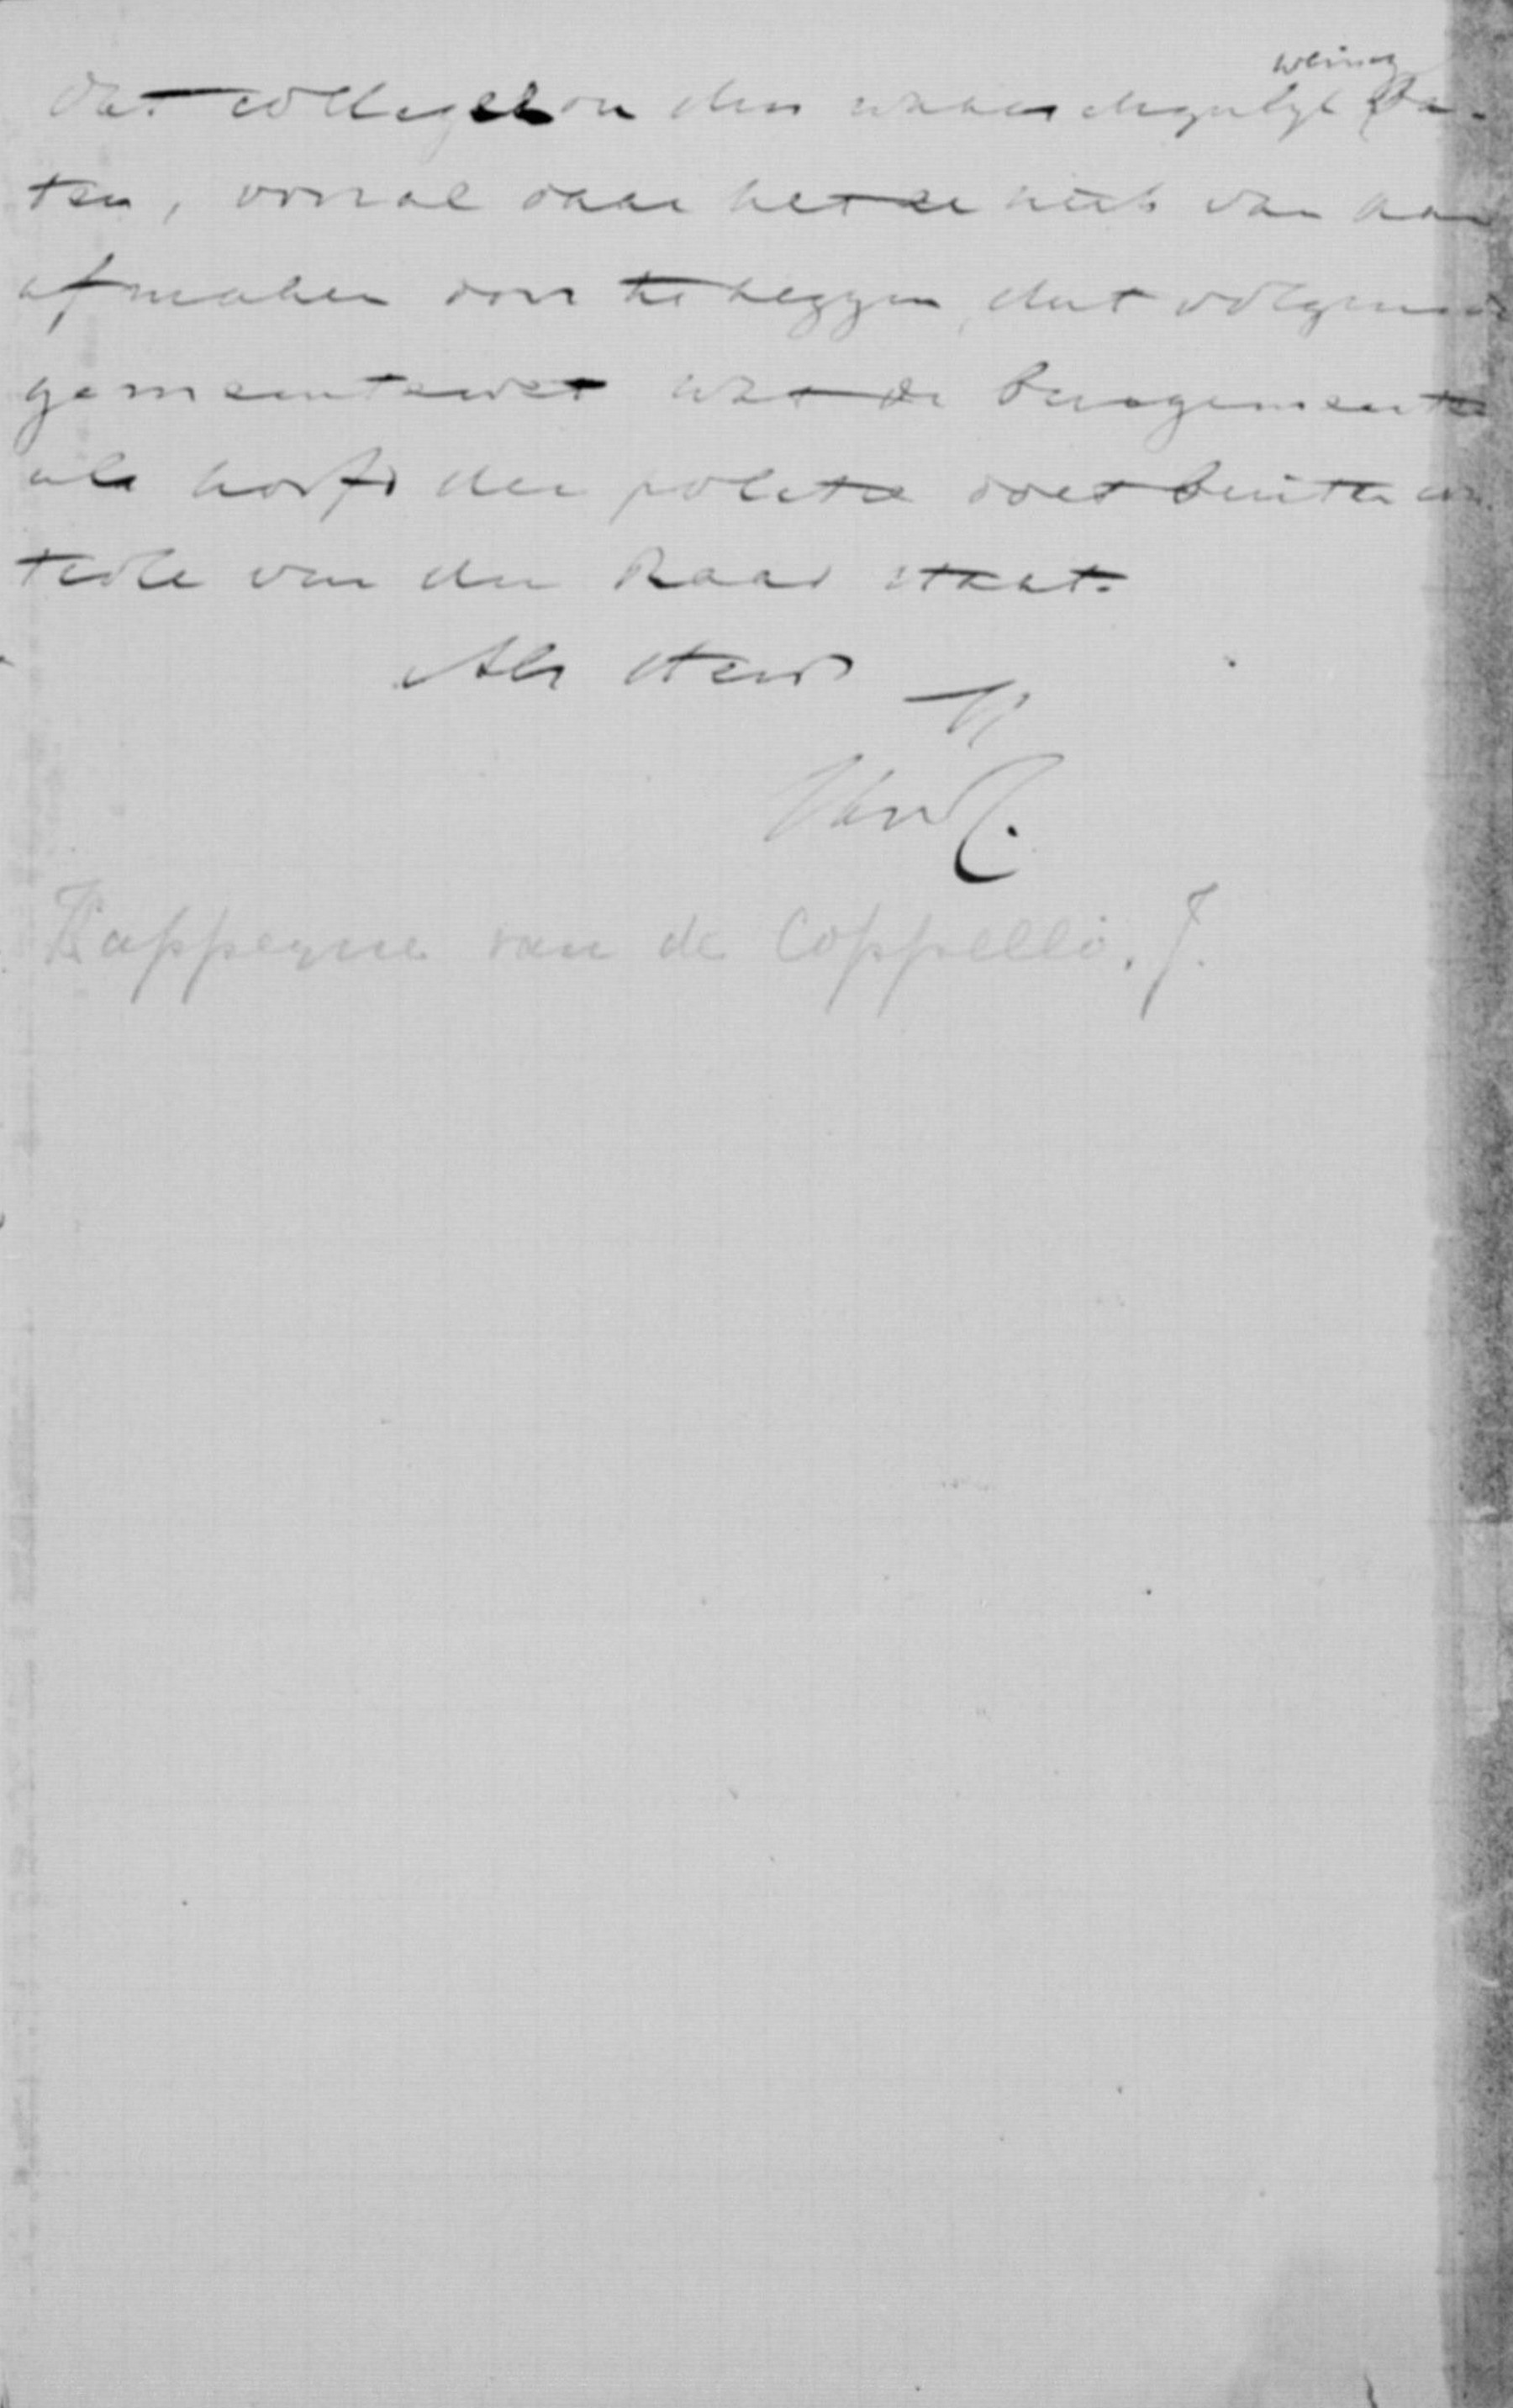 weinig
dat college zou dus waarschijnlijk ba-
ten, vooral daar het er zich van kan
afmaken door te zeggen, dat volgens de
gemeentewet wat de burgemeester
als hoofd der politie doet buiten con
trole van den Raad staat.
Als steeds
Kappeyne van de Coppello. J.